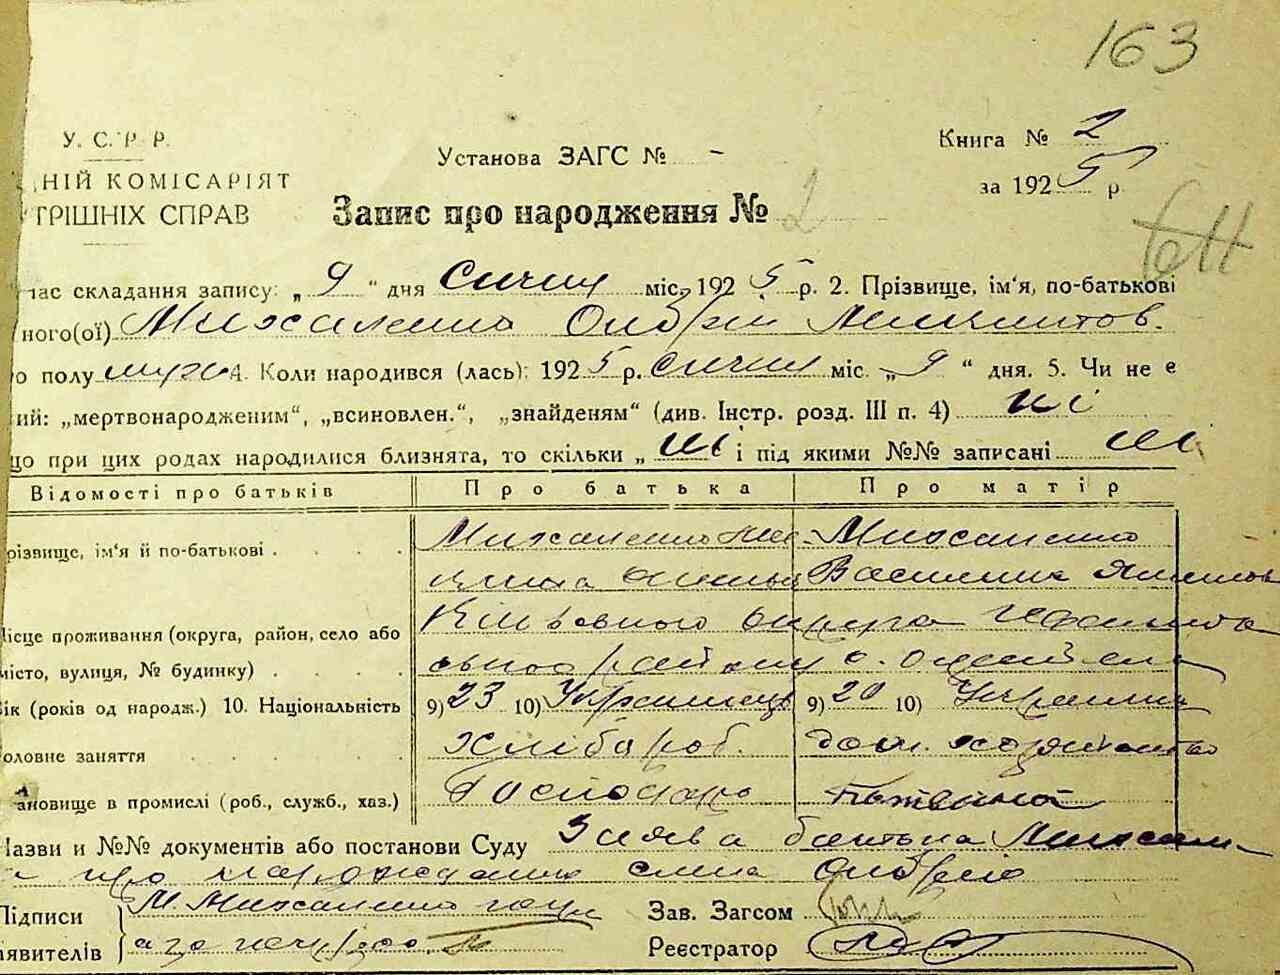 163
У. С. Р Р.
Установа ЗАГС № -
Книга № 2
НІЙ КОМІСАРІЯТ
за 1925 р.
ТРІШНІХ СПРАВ
Запис про народження № 2
час складання запису: „ 9 “ дня січня міс. 1925 р. 2. Прізвище, ім'я, по-батькові
ного(ої) Михаленко Андрій Микитов.
о полу муж. 4. Коли народився (лась): 1925 р. січня міс. „ 9 “ дня. 5. Чи не е
ий: „мертвонародженим“, „всиновлен.“, „знайденям“ (див. Інстр. розд. III п. 4) ні
що при цих родах народилися близнята, то скільки „ ні і під якими №№ записані ні
Відомості про батьків Про батька Про матір
різвище, ім'я й по-батькові . . . . Михаленко Михаленко
Василина
місце проживання (округа, район, село або округа
місто, вулиця, № будинку) . . . . району с.
Вік (років од народж.) 10. Національність 9) 23 10) Українець 9) 20 10) Українка
оловне заняття . . . . хлібороб. дом. хозяйство
ановище в промислі (роб., служб., хаз.) Господарь
Назви и №№ документів або постанови Суду Заява батька Михален-
про народження сина Андрія
Підписи М. Михаленко Зав. Загсом
аявителів Реєстратор